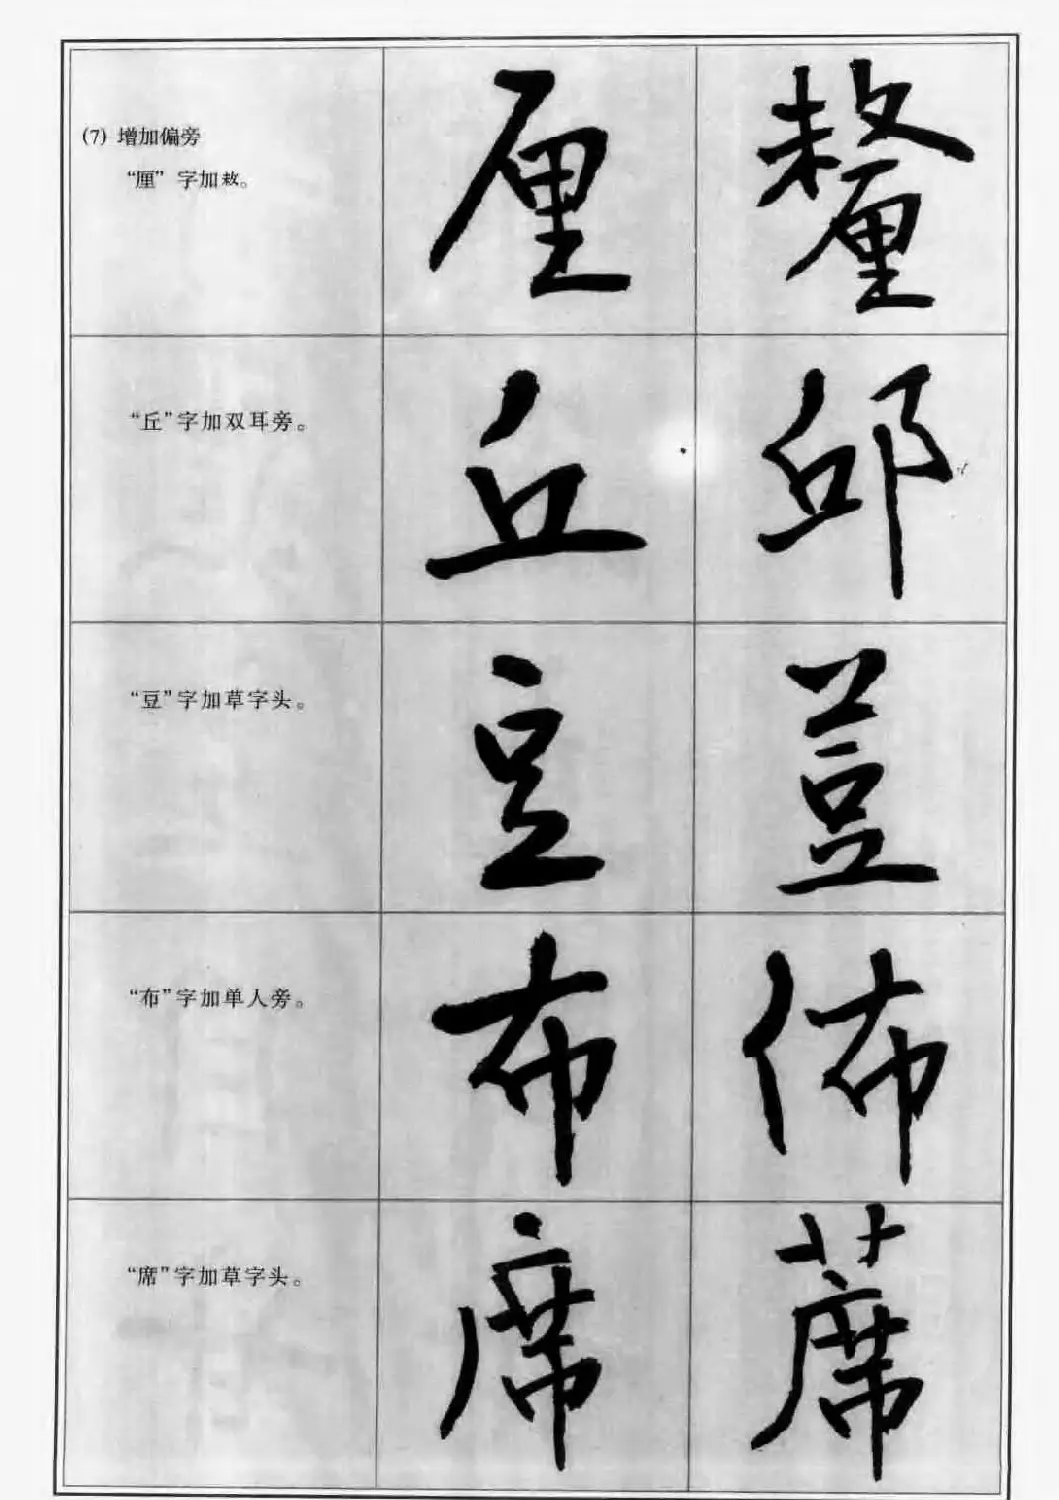 (7) 增加偏旁
“厘”字加敖。
厘 釐
“丘”字加双耳旁。
丘 邱
“豆”字加草字头。
豆 荳
“布”字加单人旁。
布 佈
“席”字加草字头。
席 蓆